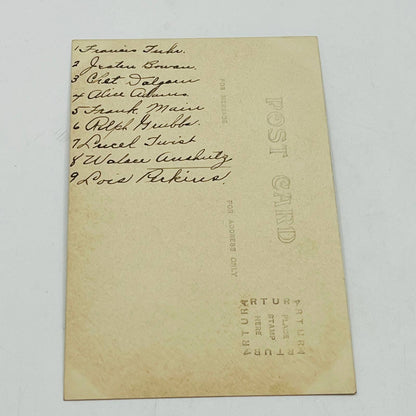 1 Francis Fuhr.
2 Jesten Bowan.
3 Chet Dalgarn
4 Alice Adams
5 Frank Main
6 Ralph Grubbs.
7 Lucel Twist
8 Walace Anshutz
9 Lois Perkins.
FOR MESSAGE
POST CARD
FOR ADDRESS ONLY
ARTURA
PLACE
STAMP
HERE
ARTURA
ARTURA
ARTURA